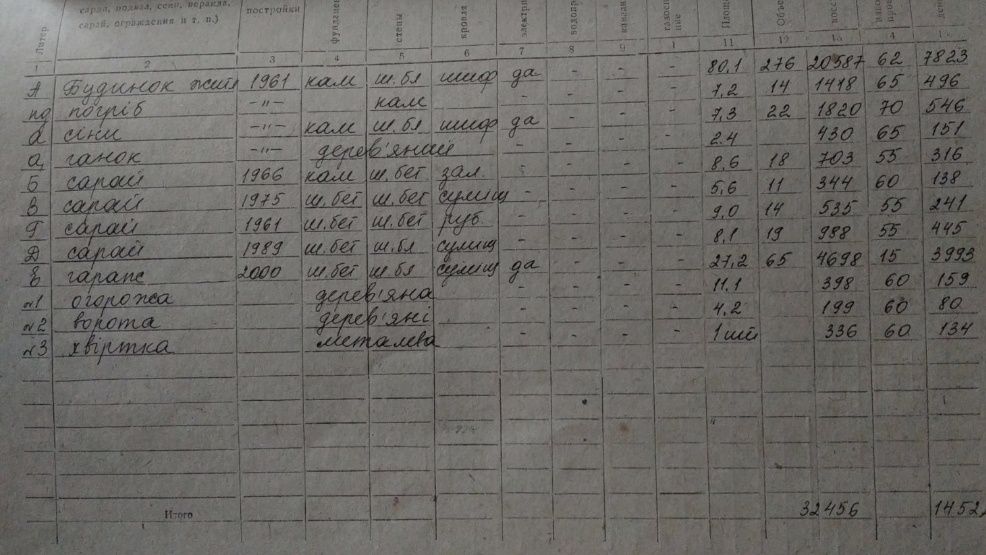 сарай, подвал, сени, веранда,
сарай, ограждения и т. п.)
Литер постройки стены кровля
1 2 3 4 5 6 7 8 9 1 11 12 13
А Будинок житл 1961 кам ш.бл шиф да - - - 80,1 276 20587 62 7823
пд погріб -"- кам - - - - 7,2 14 1418 65 496
а сіни -"- кам ш.бл шиф да - - - 7,3 22 1820 70 546
а, ганок -"- дерев'яний - - - - 2.4 430 65 151
Б сарай 1966 кам ш.бет зал. - - - - 8,6 18 703 55 316
В сарай 1975 ш.бет ш.бет суміщ - - - - 5,6 11 344 60 138
Г сарай 1961 ш.бет ш.бет руб. - - - - 9,0 14 535 55 241
Д сарай 1989 ш.бет ш.бл суміщ - - - - 8,1 19 988 55 445
Е гараж 2000 ш.бет ш.бл суміщ да - - - 27,2 65 4698 15 3993
№1 огорожа дерев'яна - - - - 11,1 398 60 159
№2 ворота дерев'яні - - - - 4,2 199 60 80
№3 хвіртка металева - - - - 1 шт 336 60 134
Итого 32456 1452